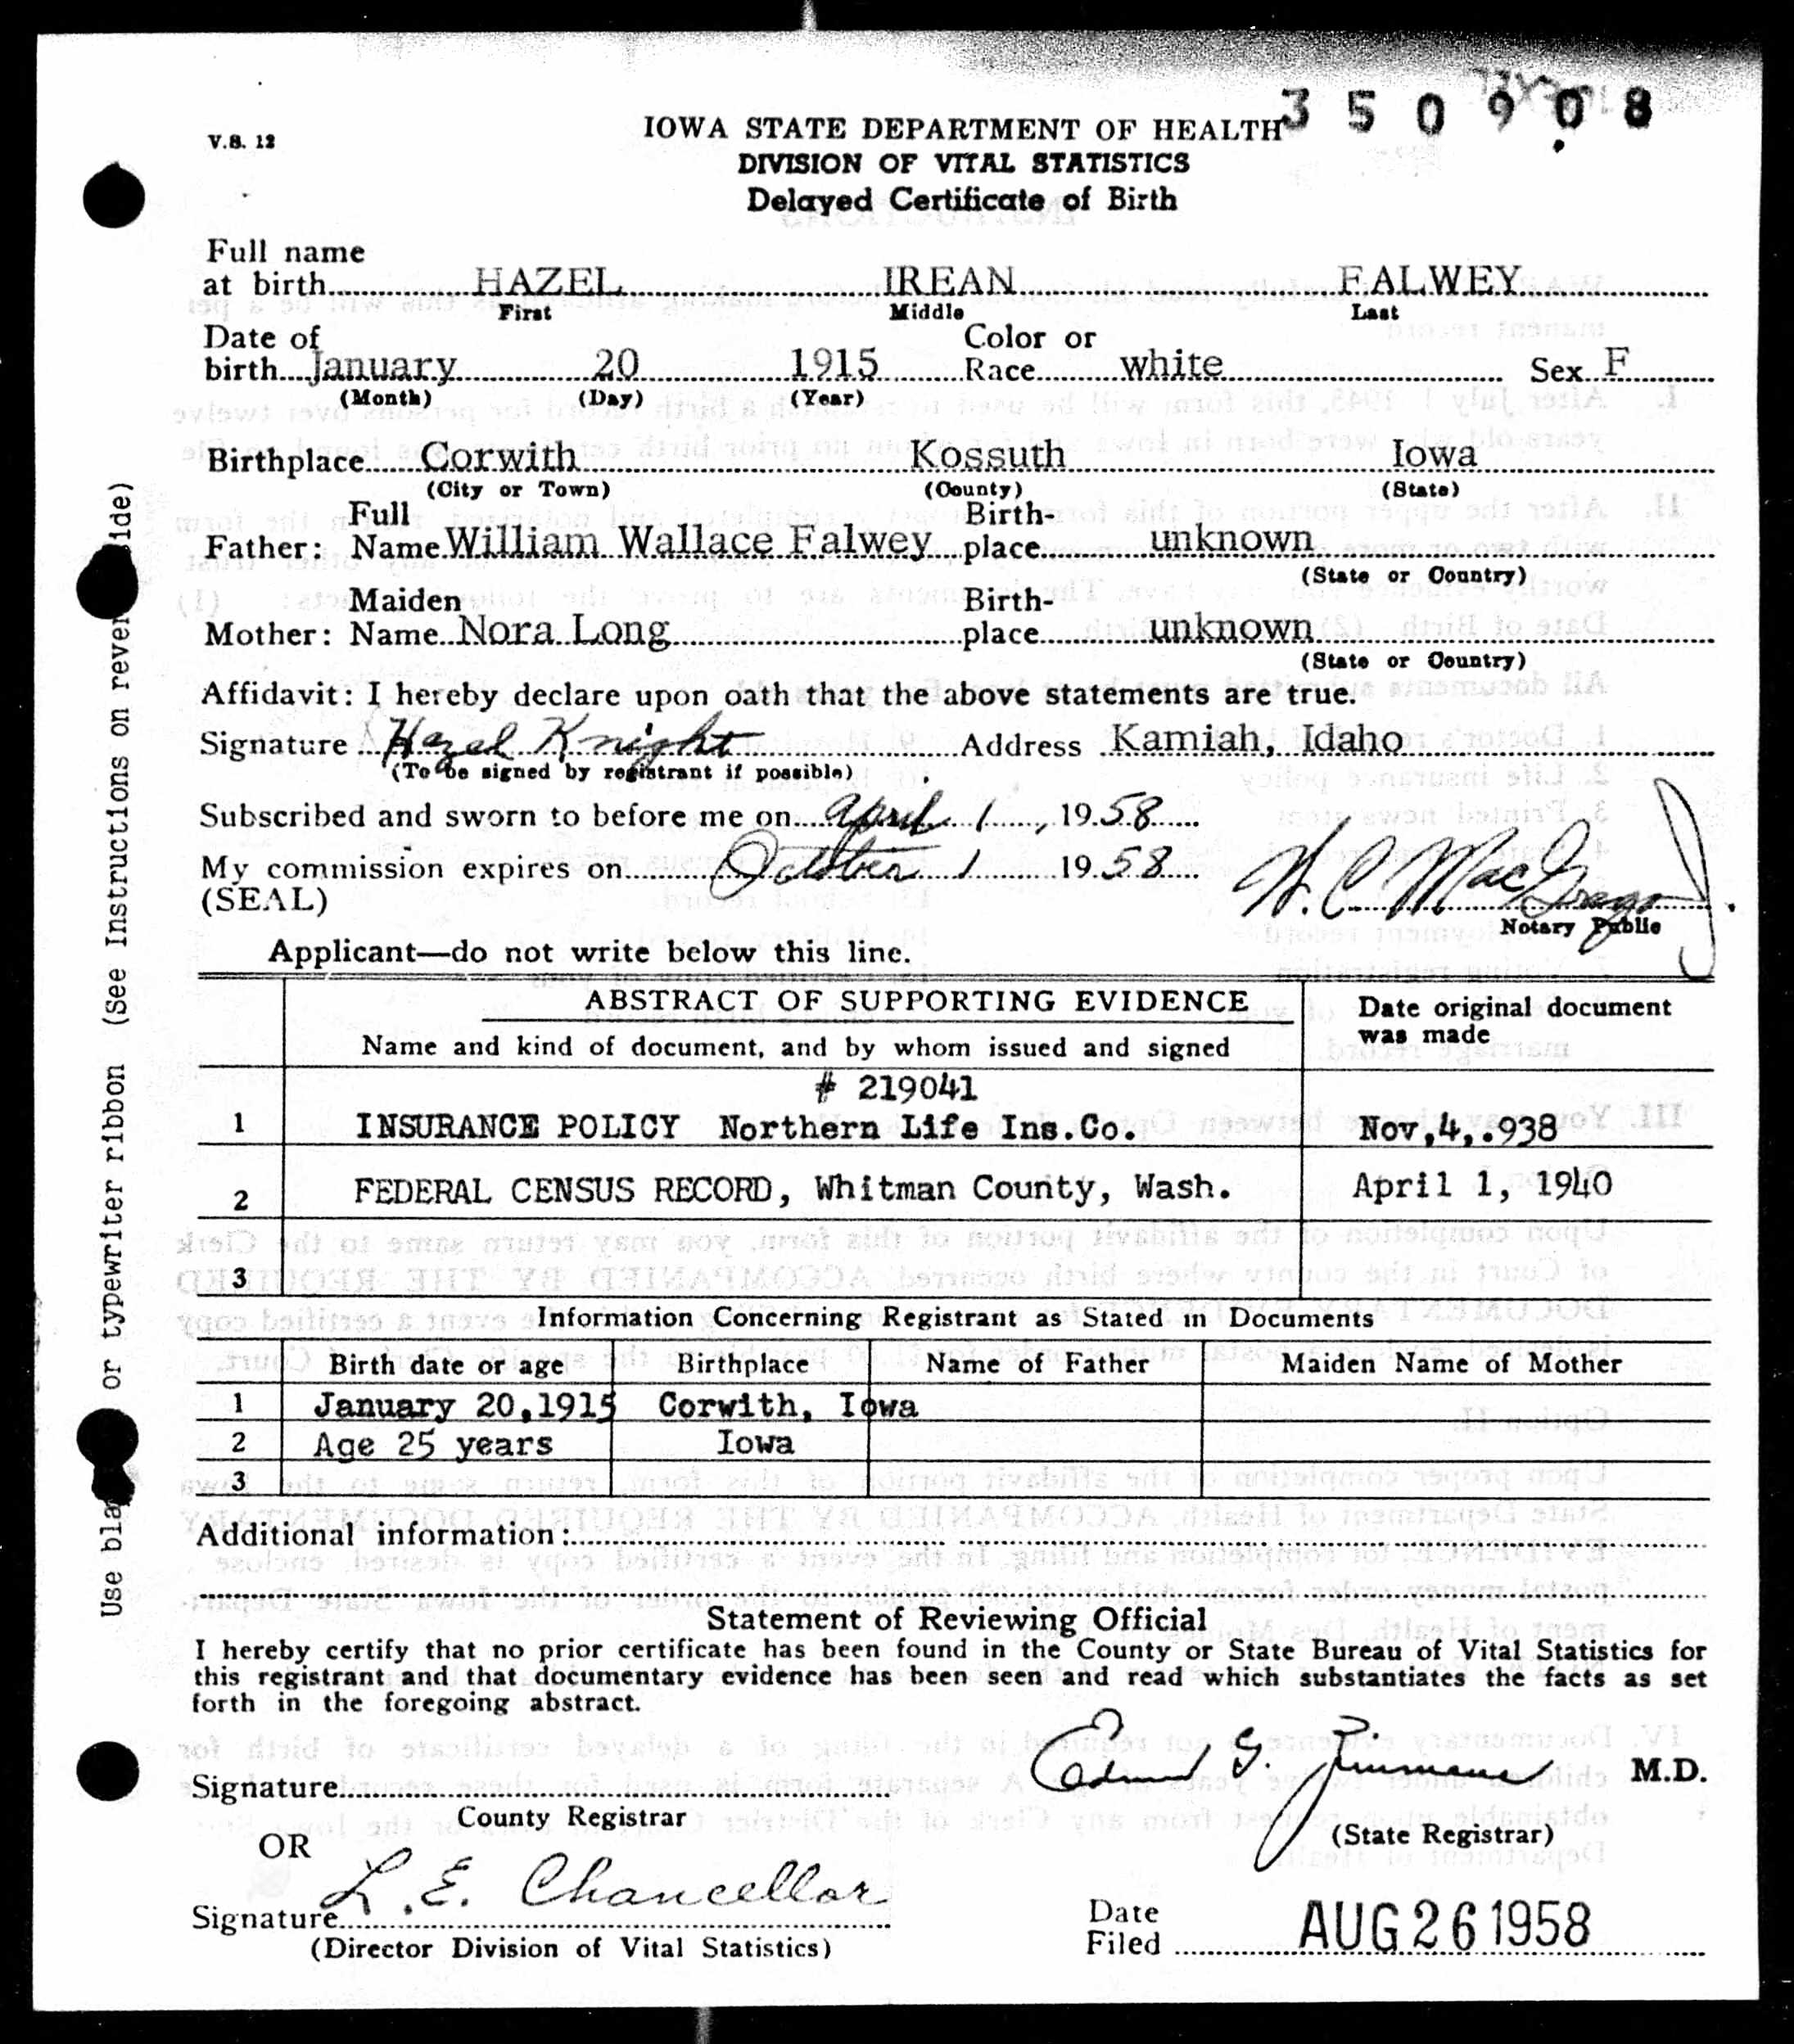 350908
V.S. 12
IOWA STATE DEPARTMENT OF HEALTH
DIVISION OF VITAL STATISTICS
Delayed Certificate of Birth
Full name
at birth HAZEL IREAN FALWEY
First Middle Last
Date of Color or
birth January 20 1915 Race white Sex F
(Month) (Day) (Year)
Birthplace Corwith Kossuth Iowa
(City or Town) (County) (State)
Full Birth-
Father: Name William Wallace Falwey place unknown
(State or Country)
Maiden Birth-
Mother: Name Nora Long place unknown
(State or Country)
Affidavit: I hereby declare upon oath that the above statements are true.
Signature Hazel Knight Address Kamiah, Idaho
(To be signed by registrant if possible)
Subscribed and sworn to before me on April 1, 1958
My commission expires on October 1 1958
(SEAL) H. C. MacGregor
Notary Public
Applicant—do not write below this line.
ABSTRACT OF SUPPORTING EVIDENCE Date original document
Name and kind of document, and by whom issued and signed was made
# 219041
1 INSURANCE POLICY Northern Life Ins.Co. Nov,4,.938
2 FEDERAL CENSUS RECORD, Whitman County, Wash. April 1, 1940
3
Information Concerning Registrant as Stated in Documents
Birth date or age Birthplace Name of Father Maiden Name of Mother
1 January 20,1915 Corwith, Iowa
2 Age 25 years Iowa
3
Additional information:
Statement of Reviewing Official
I hereby certify that no prior certificate has been found in the County or State Bureau of Vital Statistics for
this registrant and that documentary evidence has been seen and read which substantiates the facts as set
forth in the foregoing abstract.
Signature M.D.
County Registrar (State Registrar)
OR
Signature L. E. Chancellor
(Director Division of Vital Statistics)
Date
Filed AUG 26 1958
Use or typewriter ribbon (See Instructions on